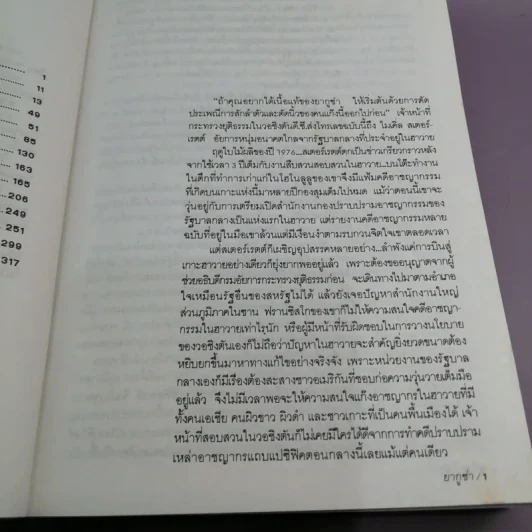 1
11
13
49
51
85
130
163
165
206
249
251
299
317
"ถ้าคุณอยากได้เนื้อแท้ของยากูซ่า ให้เริ่มต้นด้วยการตัด
ประเพณีการสักลำตัวและตัดนิ้วของคนแก๊งนี้ออกไปก่อน" เจ้าหน้าที่
กระทรวงยุติธรรมในวอชิงตันดี.ซี.ส่งโทรเลขฉบับนี้ถึง ไมเคิล สเตอร์-
เรตต์ อัยการหนุ่มอนาคตไกลจากรัฐบาลกลางที่ประจำอยู่ในฮาวาย
ฤดูใบไม้ผลิของปี 1976...สเตอร์เรตต์ตกเป็นข่าวเกรียวกราวหลัง
จากใช้เวลา 3 ปีเต็มกับงานสืบสวนสอบสวนในฮาวาย...บนโต๊ะทำงาน
ในตึกที่ทำการเก่าแก่ในโฮโนลูลูของเขาจึงมีแฟ้มคดีอาชญากรรม
ที่เกิดบนเกาะแห่งนี้มาหลายปีกองสุมเต็มไปหมด แม้ว่าตอนนี้เขาจะ
วุ่นอยู่กับการเตรียมเปิดสำนักงานกองปราบปรามอาชญากรรมของ
รัฐบาลกลางเป็นแห่งแรกในฮาวาย แต่รายงานคดีอาชญากรรมหลาย
ฉบับที่อยู่ในมือเขาล้วนแต่มีเงื่อนงำตามรบกวนจิตใจเขาตลอดเวลา
แต่สเตอร์เรตต์ก็เผชิญอุปสรรคหลายอย่าง...ลำพังแค่การบินสู่
เกาะฮาวายอย่างเดียวก็ยุ่งยากพออยู่แล้ว เพราะต้องขออนุญาตจากผู้
ช่วยอธิบดีกรมอัยการกระทรวงยุติธรรมก่อน จะเดินทางไปมาตามอำเภอ
ใจเหมือนรัฐอื่นของสหรัฐไม่ได้ แล้วยังเจอปัญหาสำนักงานใหญ่
ส่วนภูมิภาคในซาน ฟรานซิสโกของเขาก็ไม่ให้ความสนใจคดีอาชญา-
กรรมในฮาวายเท่าไรนัก หรือผู้มีหน้าที่รับผิดชอบในการวางนโยบาย
ของวอชิงตันเองก็ไม่ถือว่าปัญหาในฮาวายจะสำคัญยิ่งยวดขนาดต้อง
หยิบยกขึ้นมาหาทางแก้ไขอย่างจริงจัง เพราะหน่วยงานของรัฐบาล
กลางเองก็มีเรื่องต้องสะสางชาวอเมริกันที่ชอบก่อความวุ่นวายเต็มมือ
อยู่แล้ว จึงไม่มีเวลาพอจะให้ความสนใจแก๊งอาชญากรในฮาวายที่มี
ทั้งคนเอเชีย คนผิวขาว ผิวดำ และชาวเกาะที่เป็นคนพื้นเมืองได้ เจ้า
หน้าที่สอบสวนในวอชิงตันก็ไม่เคยมีใครได้ดีจากการทำคดีปราบปราม
เหล่าอาชญากรแถบแปซิฟิคตอนกลางนี้เลยแม้แต่คนเดียว
ยากูซ่า / 1